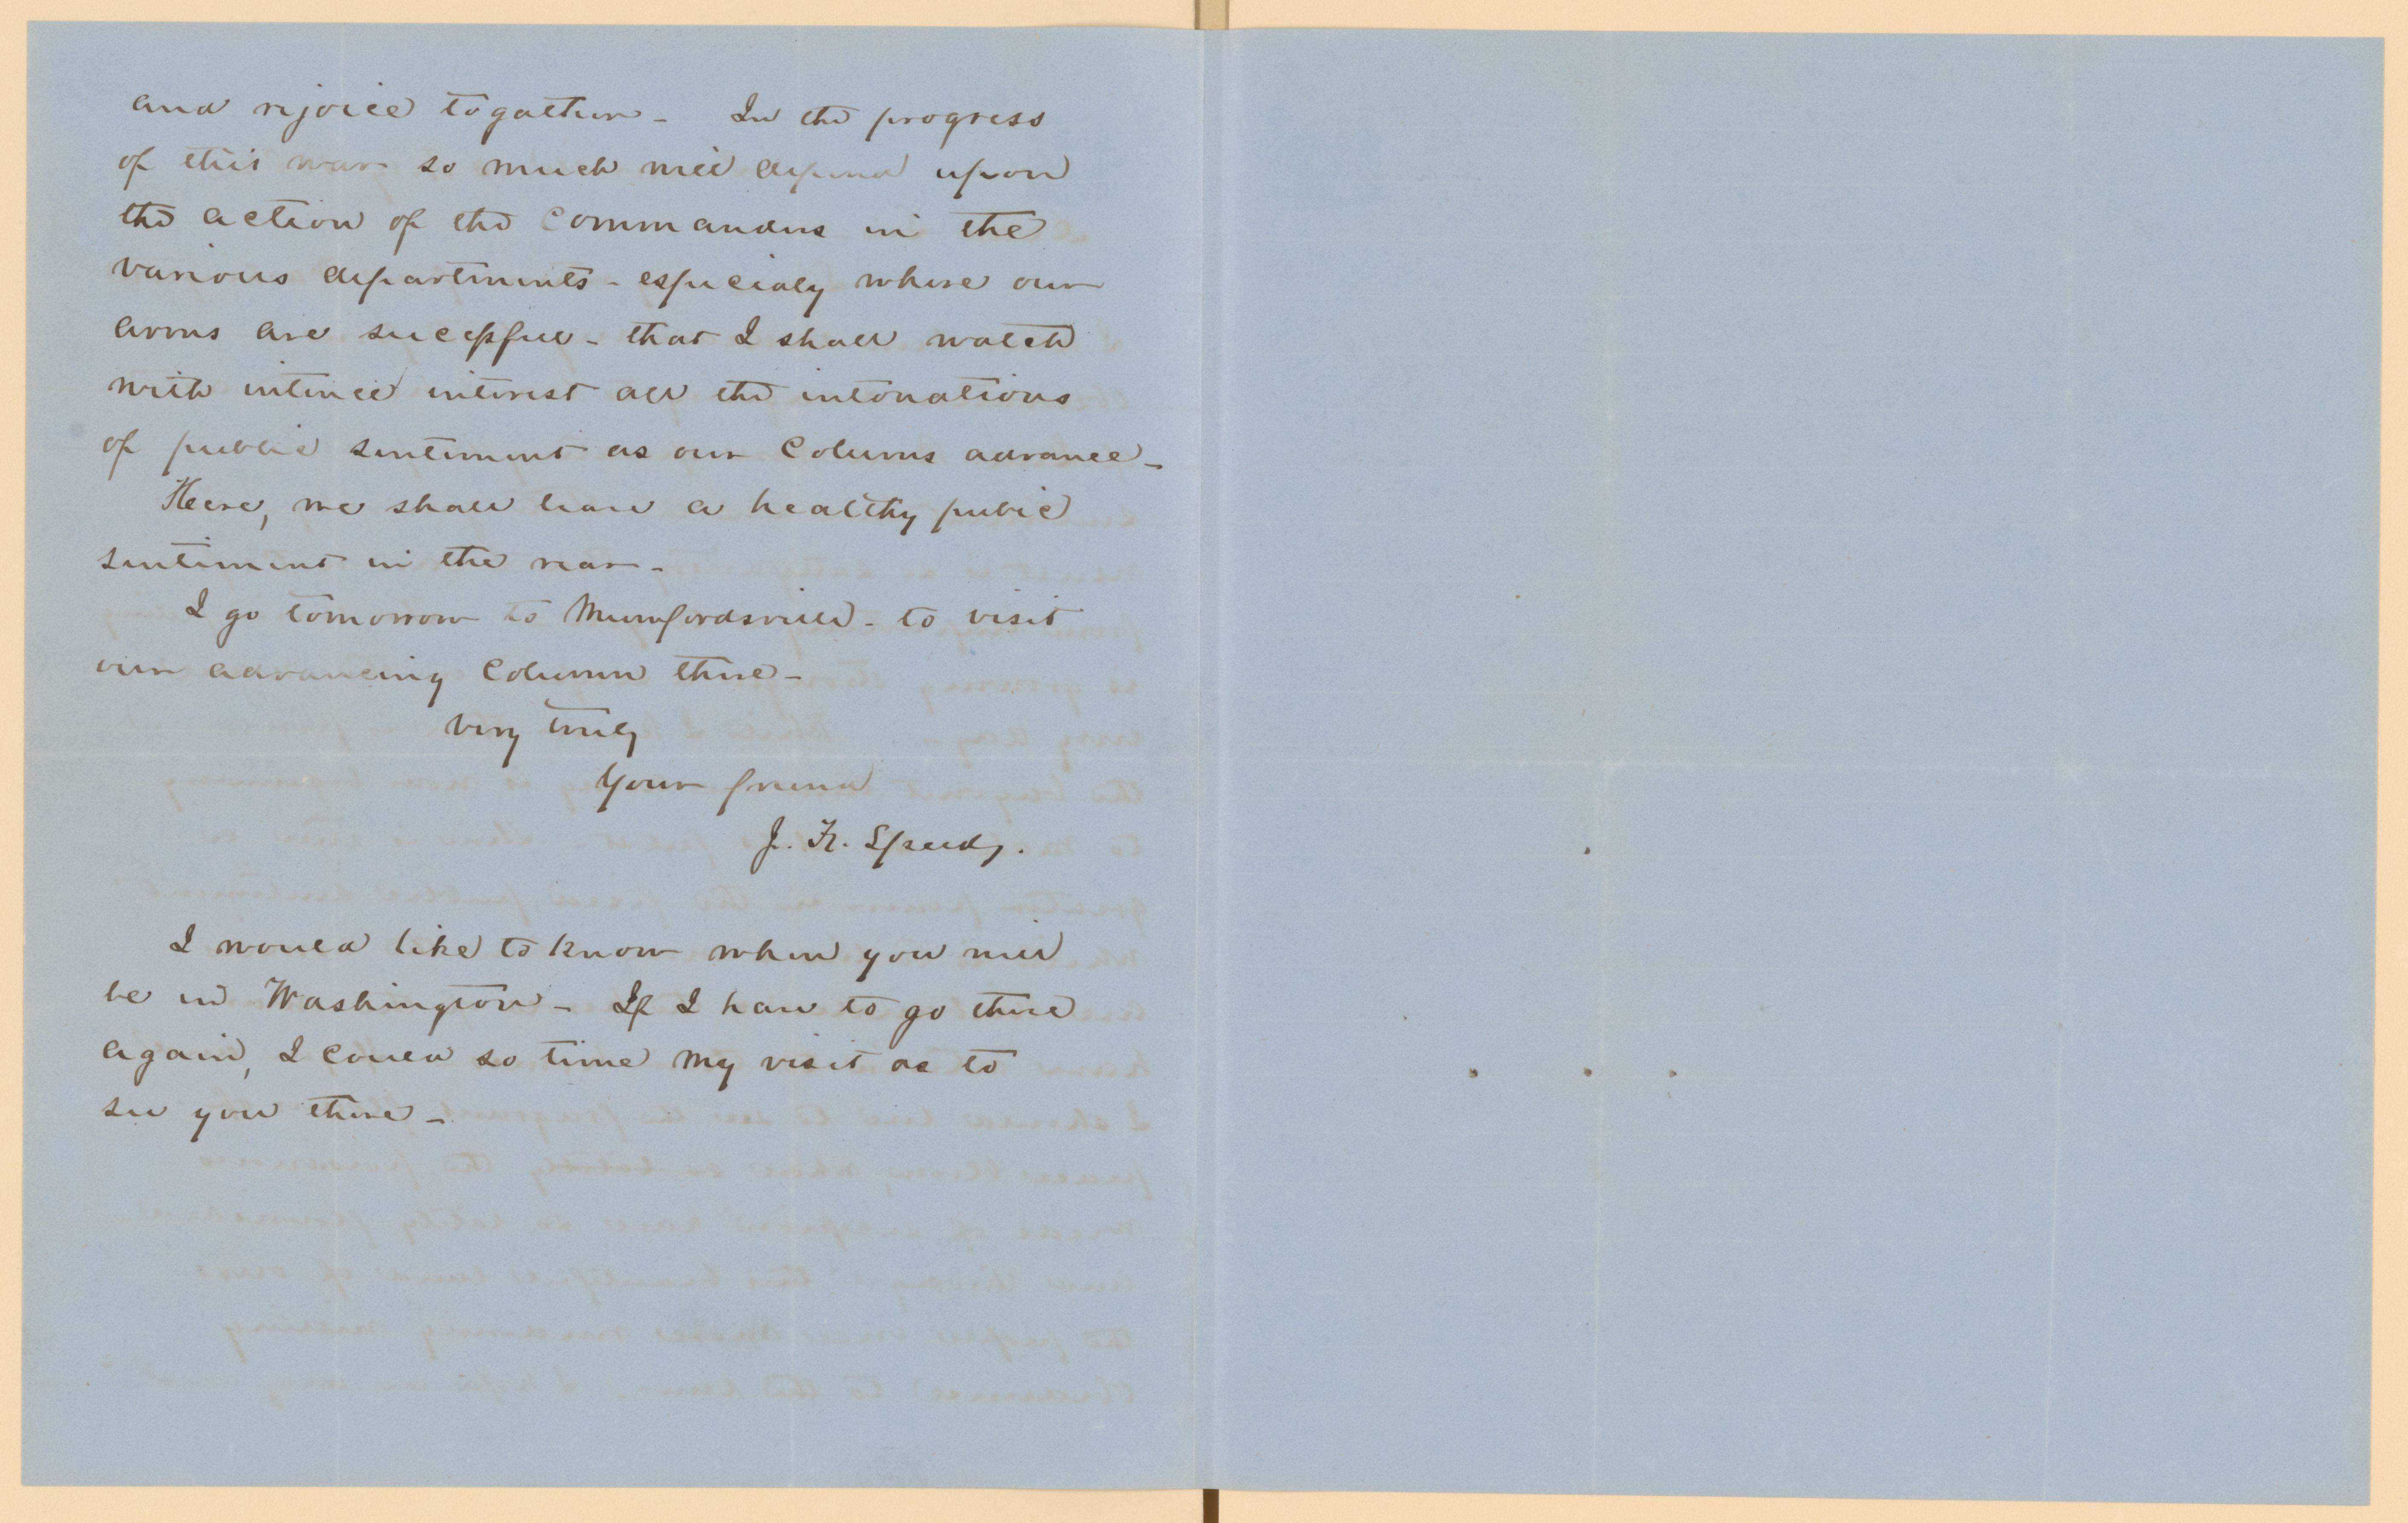 and rejoice togather - In the progress
of this war so much will depend upon
the action of the commanders in the
various departments - especialy where our
arms are successful - that I shall watch
with intence interest all the intonations
of public sentiment as our Colums advance -
Here, we shall leave a healthy public
sentiment in the rear -
I go tomorrow to Mumfordsville - to visit
our advancing Column there -
Very truly
Your friend
J. F. Speed,.
I would like to know when you will
be in Washington - If I have to go there
again, I could so time my visit as to
see you there -